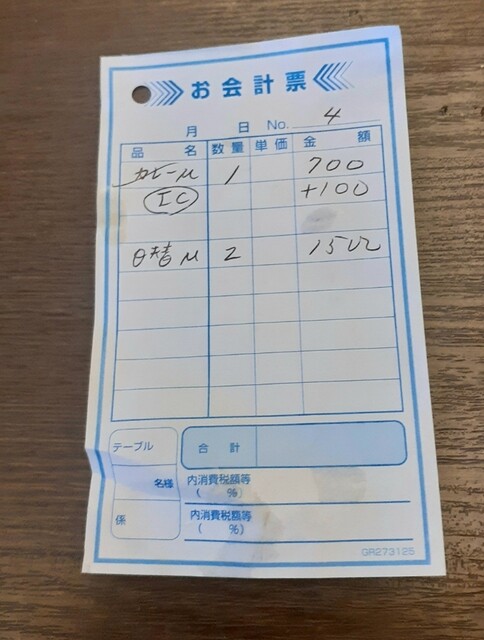 お会計票
月 日 No. 4
品 名 数量 単価 金 額
カレーM 1 700
IC +100
日替M 2
テーブル 合 計
名様 内消費税額等
( %)
係 内消費税額等
( %)
GR273125